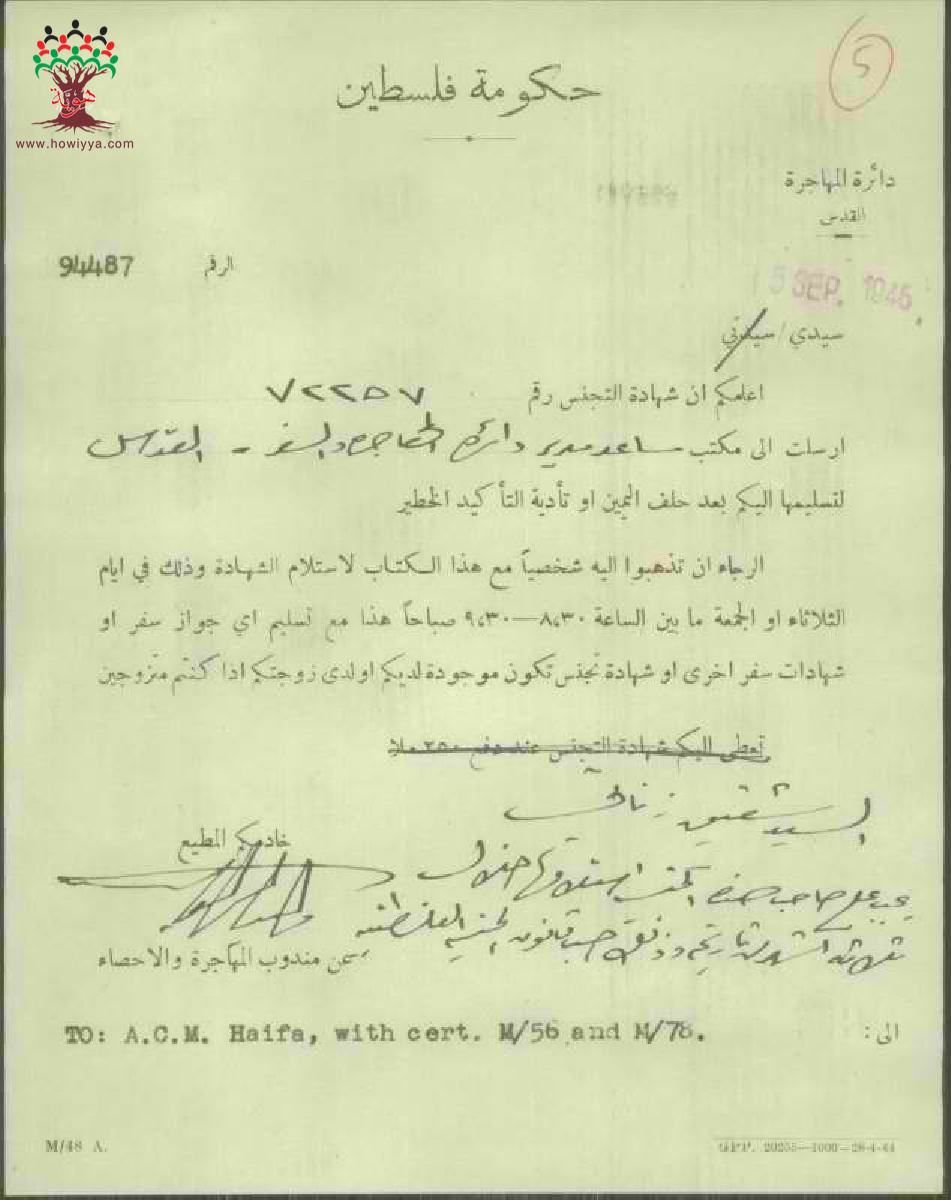 هوية
www.howiyya.com
5
حكومة فلسطين
دائرة المهاجرة
القدس
الرقم 94487
5 SEP. 1946
سيدي/سيدتي
اعلمكم ان شهادة التجنس رقم ٧٢٢٥٧
ارسلت الى مكتب مساعد مدير دائرة المهاجرة والسفر - القدس
لتسليمها اليكم بعد حلف اليمين او تأدية التأكيد الخطير
الرجاء ان تذهبوا اليه شخصياً مع هذا الكتاب لاستلام الشهادة وذلك في ايام
الثلاثاء او الجمعة ما بين الساعة ٨،٣٠—٩،٣٠ صباحاً هذا مع تسليم اي جواز سفر او
شهادات سفر اخرى او شهادة تجنس تكون موجودة لديكم او لدى زوجتكم اذا كنتم متزوجين
تعطى اليكم شهادة التجنس عند دفع ٢٥٠ ملا
السيد شفيق
خادمكم المطيع
يجب على صاحب هذه استلامها خلال
ثلاثة اشهر من تاريخه وذلك حسب قانون الجنسية الفلسطينية
عن مندوب المهاجرة والاحصاء
الى: TO: A.C.M. Haifa, with cert. M/56 and M/78.
M/48 A.
GPP. 20255—1000—28-4-44